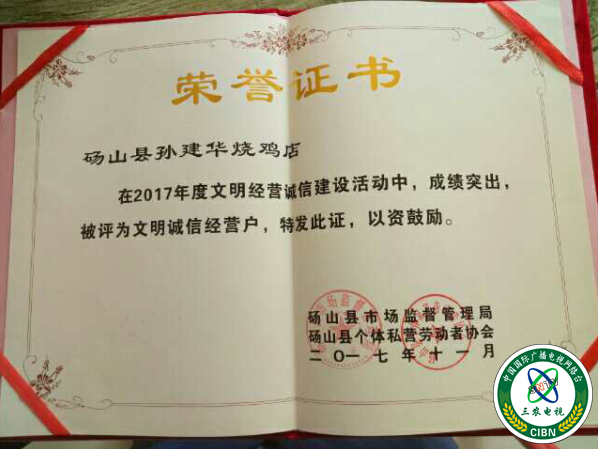 荣誉证书
砀山县孙建华烧鸡店
在2017年度文明经营诚信建设活动中，成绩突出，
被评为文明诚信经营户，特发此证，以资鼓励。
砀山县市场监督管理局
砀山县个体私营劳动者协会
二〇一七年十一月
中国国际广播电视网络台
三农电视
CIBN